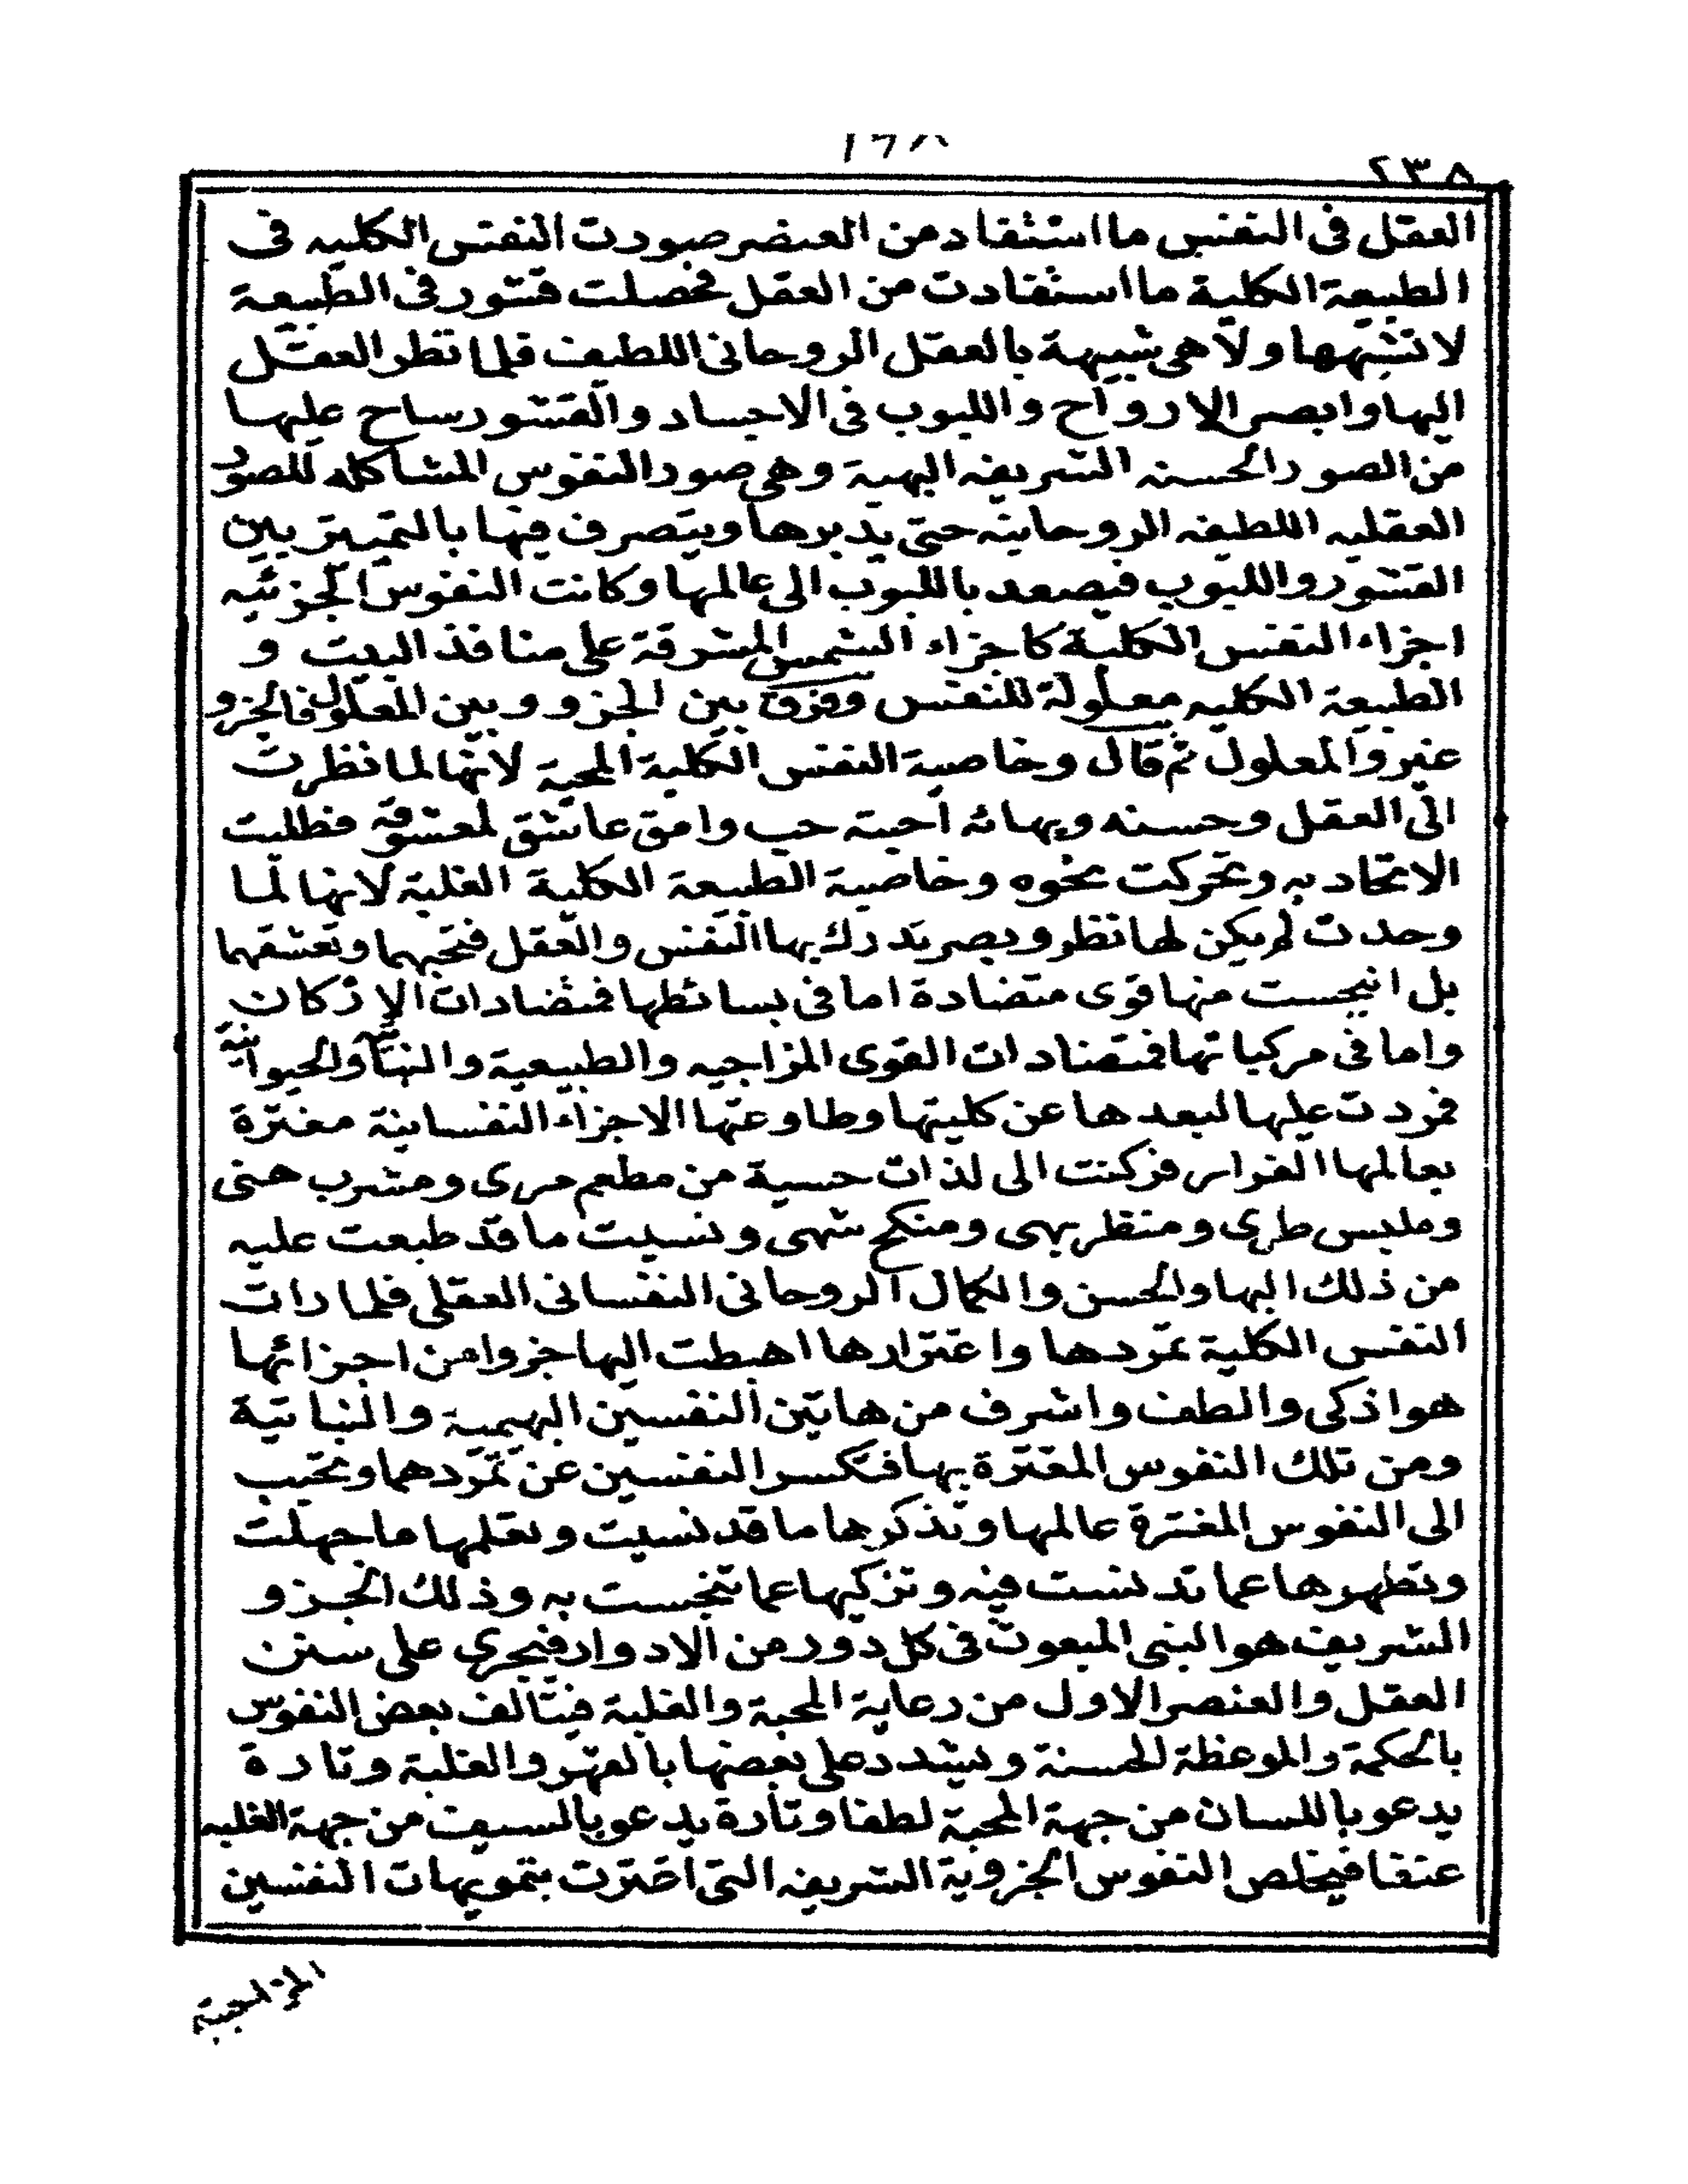 ٢٣٨
العقل فى النفس ما استفاد من العنصر صورت النفس الكليه فى
الطبيعة الكلية ما استفادت من العقل فحصلت قشور فى الطبيعة
لا تشبهها ولا هى شبيهة بالعقل الروحانى اللطيف فلما نظر العقل
اليها وابصر الارواح واللبوب فى الاجساد والقشور ساح عليها
من الصور الحسنه الشريفه البهية وهى صور النفوس المشاكله للصور
العقليه اللطيفه الروحانيه حتى يدبرها ويتصرف فيها بالتمييز بين
القشور واللبوب فيصعد باللبوب الى عالمها وكانت النفوس الجزئيه
اجزاء النفس الكلية كاجزاء الشمس المشرقة على منافذ البيت و
الطبيعة الكليه معلولة للنفس وفرق بين الجزو وبين المعلول فالجزو
غير والمعلول ثم قال وخاصية النفس الكلية المحبة لانها لما نظرت
الى العقل وحسنه وبهائه احبته حب وامق عاشق لمعشوقه فطلبت
الاتحاد به وتحركت نحوه وخاصية الطبيعة الكلية الغلبة لانها لما
وحدت لم يكن لها نظر وبصر يدرك بها النفس والعقل فتحبهما وتعشقهما
بل انبجست منها قوى متضادة اما فى بسائطها فمتضادات الاركان
واما فى مركباتها فمتضادات القوى المزاجيه والطبيعية والنباتية والحيوانية
فمردت عليها لبعدها عن كليتها وطاوعتها الاجزاء النفسانية مغترة
بعالمها الغرار فركنت الى لذات حسية من مطعم مرى ومشرب هنى
وملبس طرى ومنظر بهى ومنكح شهى ونسيت ما قد طبعت عليه
من ذلك البها والحسن والكمال الروحانى النفسانى العقلى فلما رات
النفس الكلية تمردها واغترارها اهبطت اليها جزوا من اجزائها
هو اذكى والطف واشرف من هاتين النفسين البهيمية والنباتية
ومن تلك النفوس المغترة بها فتكسر النفسين عن تمردهما وتحبب
الى النفوس المغترة عالمها وتذكرها ما قد نسيت وتعلمها ما جهلت
وتطهرها عما تدنست فيه وتزكيها عما تنجست به وذلك الجزو
الشريف هو النبى المبعوث فى كل دور من الادوار فيجرى على سنن
العقل والعنصر الاول من رعاية المحبة والغلبة فيتالف بعض النفوس
بالحكمة والموعظة الحسنة ويشدد على بعضها بالقهر والغلبة وتارة
يدعو باللسان من جهة المحبة لطفا وتارة يدعو بالسيف من جهة الغلبه
عنفا فيخلص النفوس الجزوية الشريفه التى اغترت بتمويهات النفسين